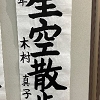 星空散歩
年
木村真子